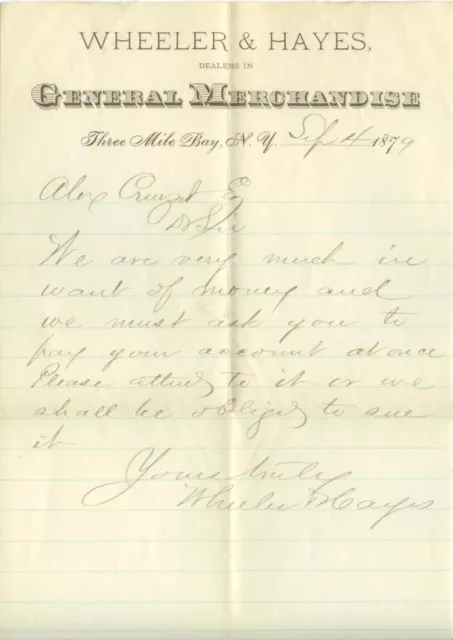 WHEELER & HAYES,
DEALERS IN
GENERAL MERCHANDISE
Three Mile Bay, N. Y. Sep 4 1879
Alex
Dr Sir
We are very much in
want of money and
we must ask you to
pay your account at once
Please attend to it or we
shall be obliged to sue
it
Yours truly
Wheeler & Hayes